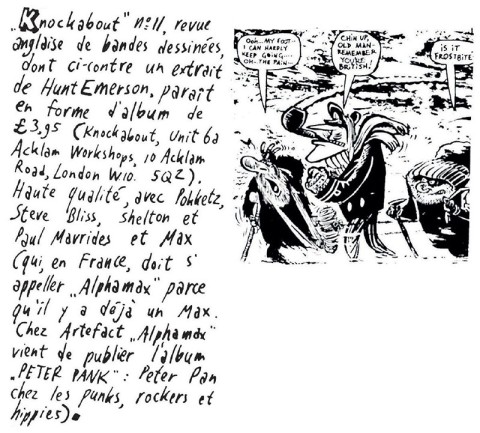 „Knockabout" n°11, revue
anglaise de bandes dessinées,
dont ci-contre un extrait
de Hunt Emerson, paraît
en forme d'album de
£3,95 (Knockabout, Unit 6a
Acklam Workshops, 10 Acklam
Road, London W10. 5QZ).
Haute qualité, avec Pohketz,
Steve Bliss, Shelton et
Paul Mavrides et Max
(qui, en France, doit s'
appeller „Alphamax" parce
qu'il y a déjà un Max.
Chez Artefact „Alphamax"
vient de publier l'album
„PETER PANK" : Peter Pan
chez les punks, rockers et
hippies).
OOH...MY FOOT...
I CAN HARDLY
KEEP GOING...
OH...THE PAIN...
CHIN UP,
OLD MAN-
REMEMBER
YOU'RE
BRITISH!
IS IT
FROSTBITE